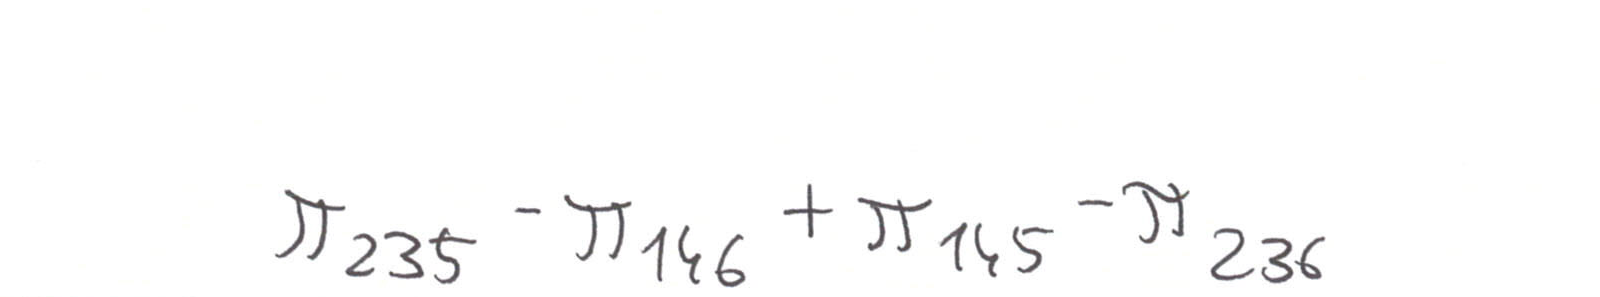 π₂₃₅ - π₁₄₆ + π₁₄₅ - π₂₃₆